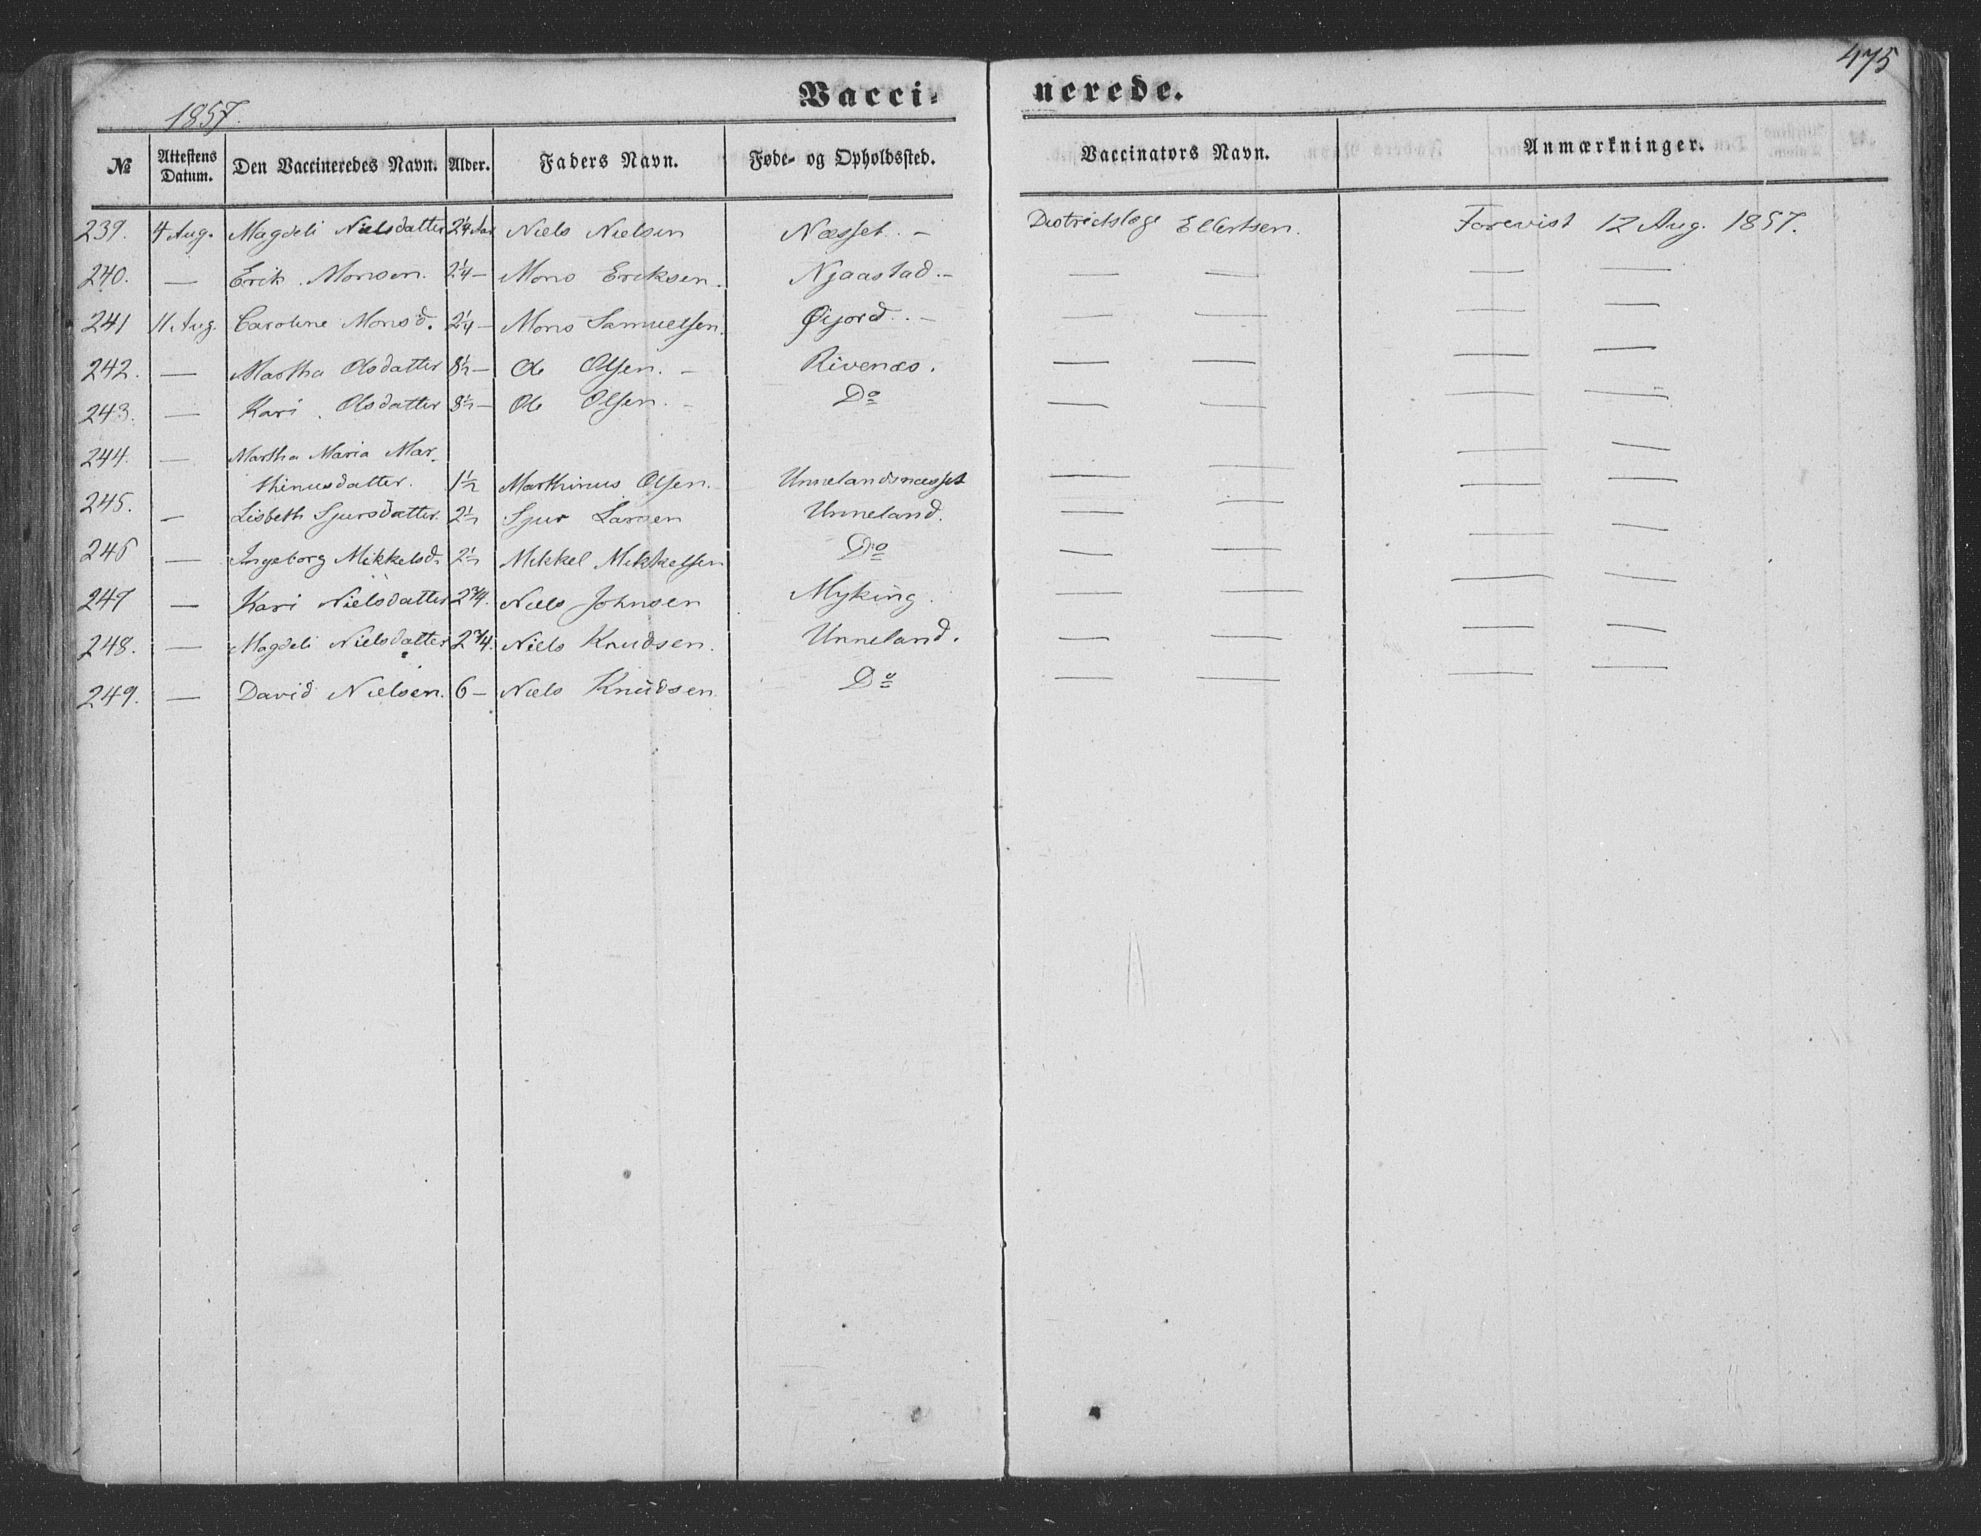 475
1857. Vacci- nerede.
№ Attestens Datum. Den Vaccineredes Navn. Alder. Faders Navn. Føde- og Opholdssted. Vaccinators Navn. Anmærkninger.
239. 4 Aug. Magdeli Nielsdatter 2¼ Aar Niels Nielsen Næsset. — Districtslæge Ellertsen. Forevist 12 Aug. 1857.
240. — Erik Monsen. 2¼ — Mons Eriksen. Njaastad. — — — — —
241 11 Aug. Caroline Monsd. 2¼ — Mons Samuelsen. Øijord. — — — — —
242. — Martha Olsdatter 8½ — Ole Olsen. — Rivenæs. — — — —
243. — Kari Olsdatter 8½ — Ole Olsen. — Do — — — —
244. — Martha Maria Mar-
thinusdatter. 1½ Marthinus Olsen. Unnelandsnæsset — — — —
245. — Lisbeth Sjursdatter. 2½ Sjur Larsen Unneland. — — — —
246 — Ingeborg Mikkelsd. 2½ Mikkel Mikkelsen Do — — — —
247 — Kari Nielsdatter 2¾. Niels Johnsen Myking. — — — —
248. — Magdeli Nielsdatter 2¾. Niels Knudsen. Unneland. — — — —
249. — David Nielsen. 6 — Niels Knudsen. Do — — — —